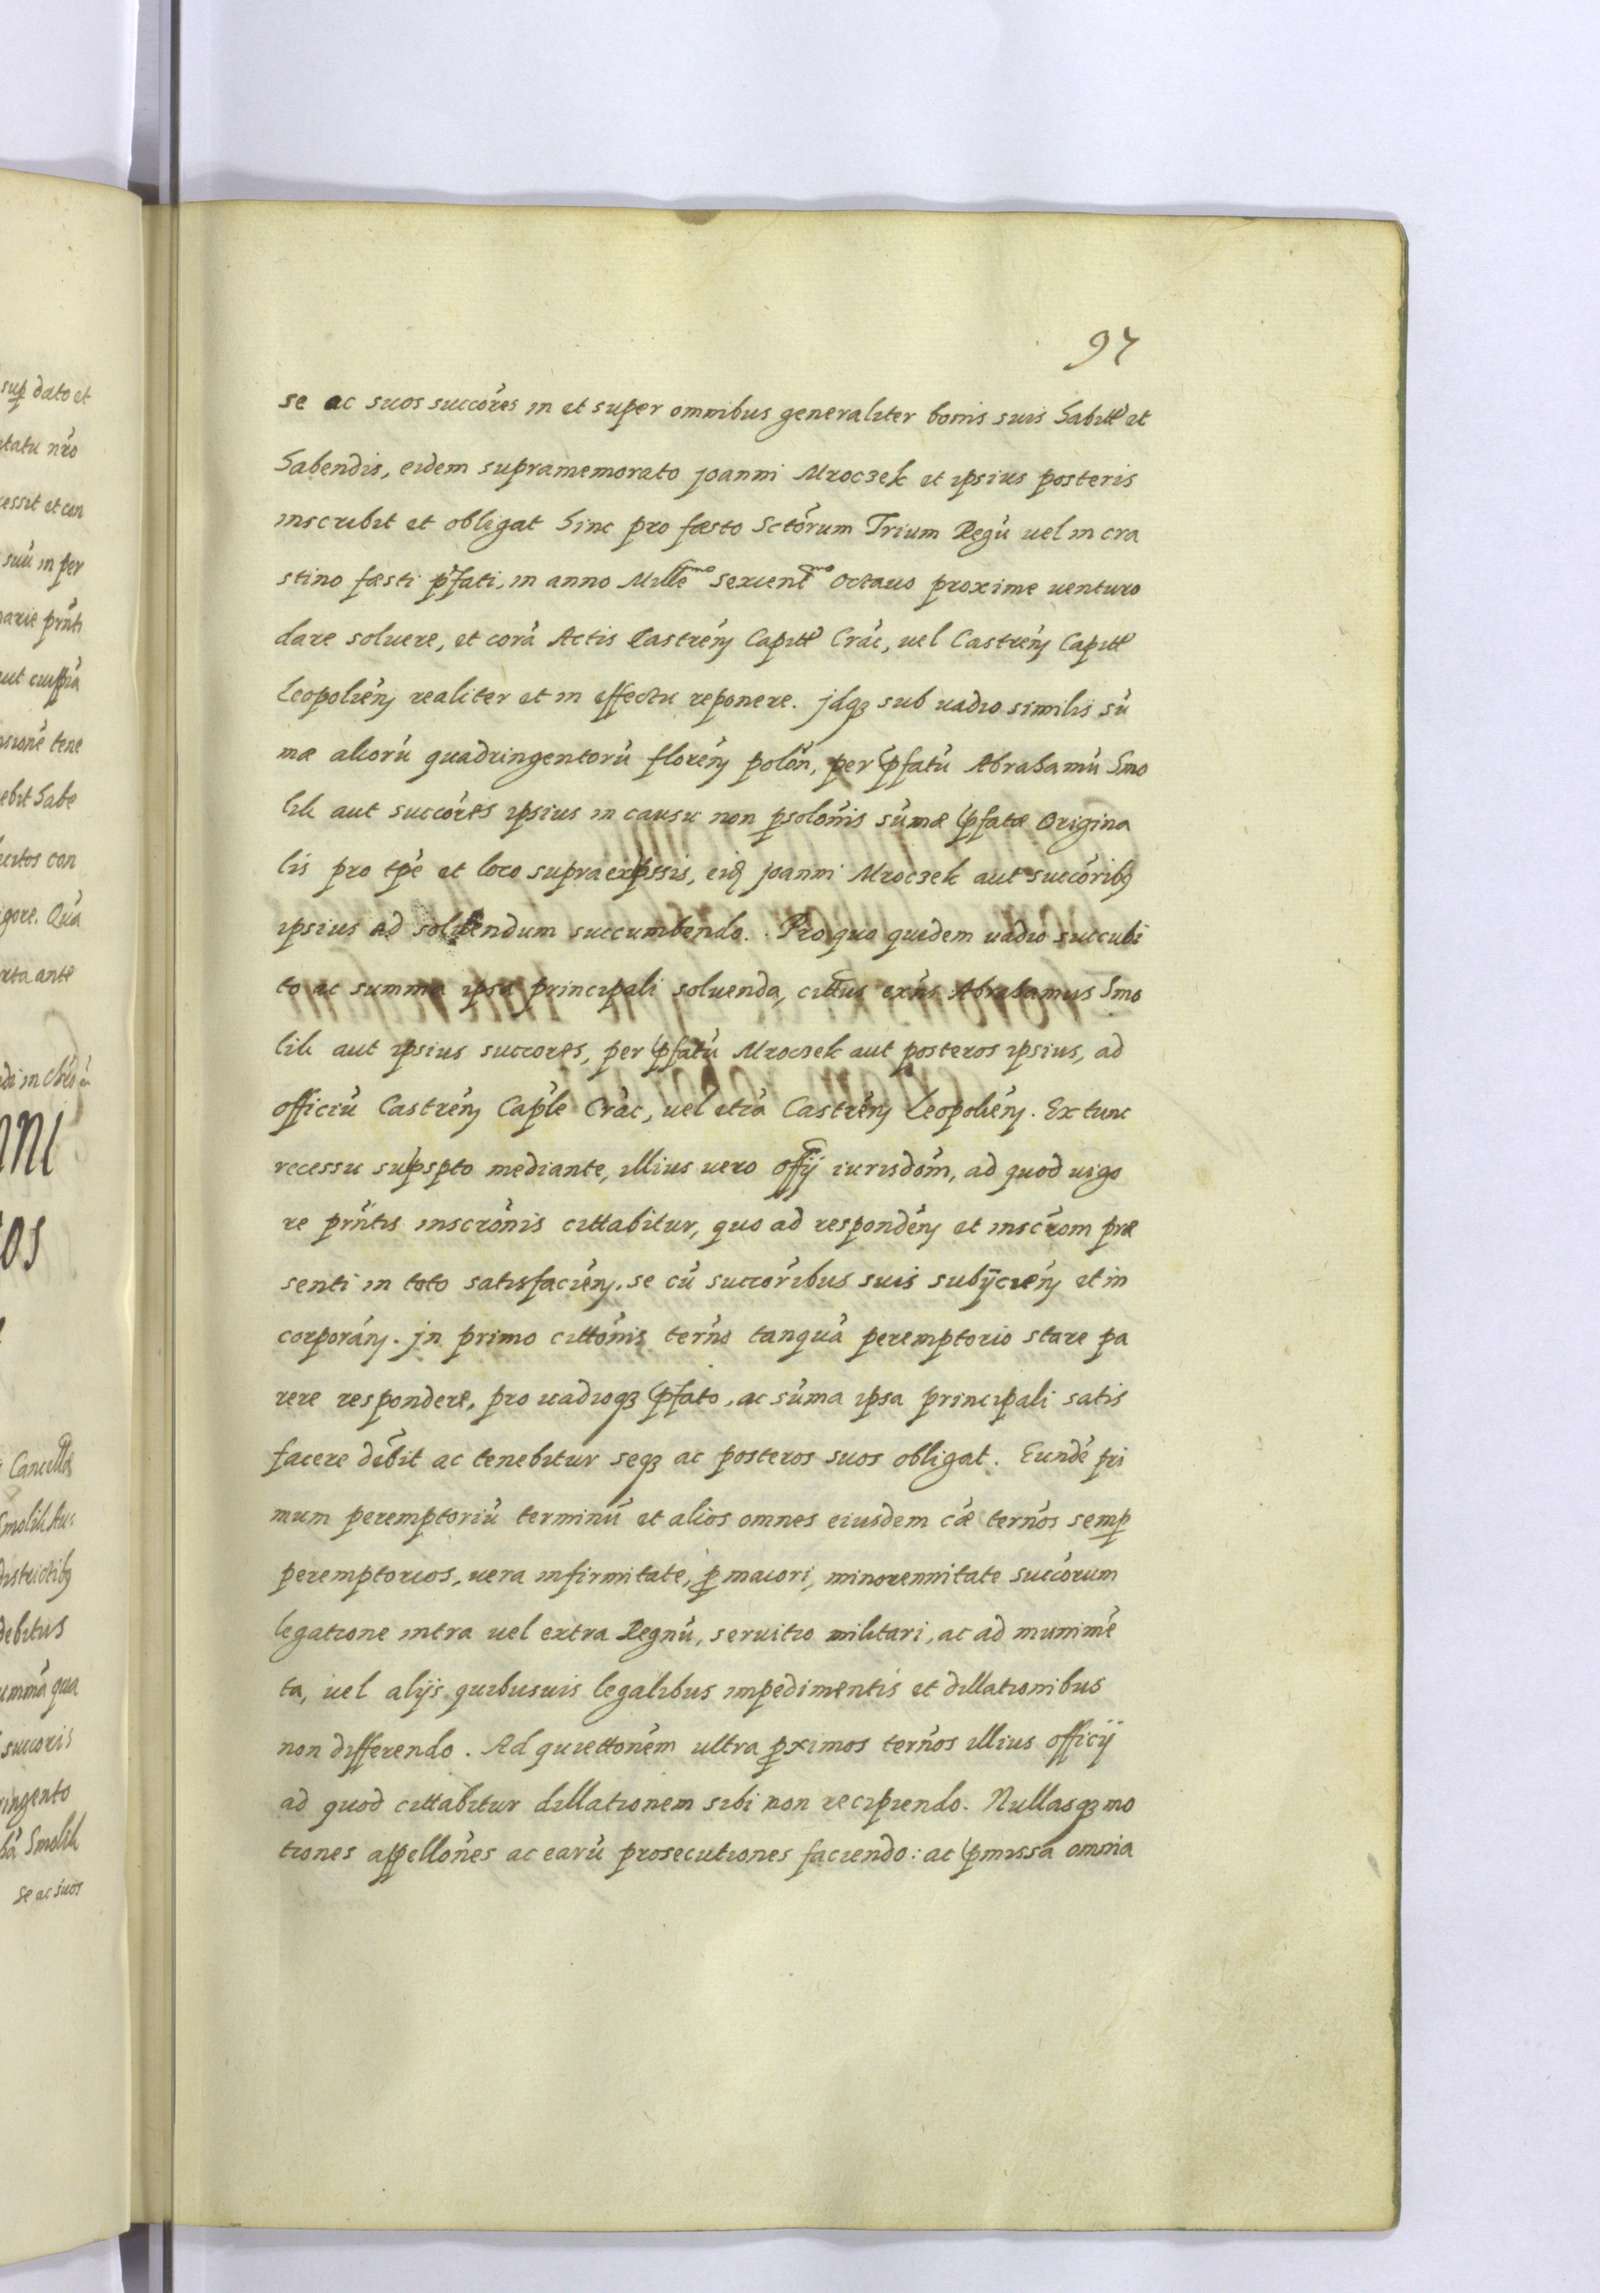 97
se ac suos succo͂res in et super omnibus generaliter bonis suis habitt͂ et
habendis, eidem supramemorato joanni Mroczek et ipsius posteris
inscribit et obligat hinc pro fæsto Scto͂rum Trium Regu͂ vel in cra
stino fæsti p͂fati, in anno Mille͂mo sexcent͂mo octauo proxime venturo
dare soluere, et cora͂ Actis Castre͂n Capitt͂ Cra͂c, uel Castre͂n Capitt͂
Leopolie͂n realiter et in effectu reponere. jdqȝ sub uadio similis su͂
mæ alioru͂ quadringentoru͂ flore͂n polo͂n, per p͂fatu͂ Abrahamu͂ Smo
lik aut succo͂res ipsius in causu non p̱solo͂nis su͂mæ p͂fatæ Origina
lis pro tp͂e et loco supraexp͂ssis, eid͂ joanni Mroczek aut succo͂ribȝ
ipsius ad soluendum succumbendo. Pro quo quidem uadio succubi
to ac summa ipsa principali soluenda, citt͂us exn͂s Abrahamus Smo
lik aut ipsius succores, per p͂fatu͂ Mroczek aut posteros ipsius, ad
officiu͂ Castre͂n Cap͂le Cra͂c, uel etia͂ Castre͂n Leopolie͂n. Ex tunc
recessu sup͂spto mediante, illius uero off͂ij iurisdo͂m, ad quod uigo
re prn͂tis inscro͂nis cittabitur, quo ad responde͂n et inscr͂om præ
senti in toto satisfacie͂n, se cu͂ succo͂ribus suis subÿcie͂n et in
corpora͂n. jn primo citto͂nis tern͂o tanqua͂ peremptorio stare pa
rere respondere, pro uadioqȝ p͂fato, ac su͂ma ipsa principali satis
facere de͂bit ac tenebitur seqȝ ac posteros suos obligat. Eunde͂ pri
mum peremptoriu͂ terminu͂ et alios omnes eiusdem c͂æ tern͂os semp̱
peremptorios, uera infirmitate, p̱ maiori, minorennitate succo͂rum
legatione intra uel extra Regnu͂, seruitio militari, ac ad munime͂
ta, uel alijs quibusuis legalibus impedimentis et dillationibus
non differendo. Ad quietto͂nem ultra p̱ximos tern͂os illius officÿ
ad quod cittabitur dillationem sibi non recipiendo. Nullasqȝ mo
tiones appello͂nes ac earu͂ prosecutiones faciendo: ac p͂missa omnia